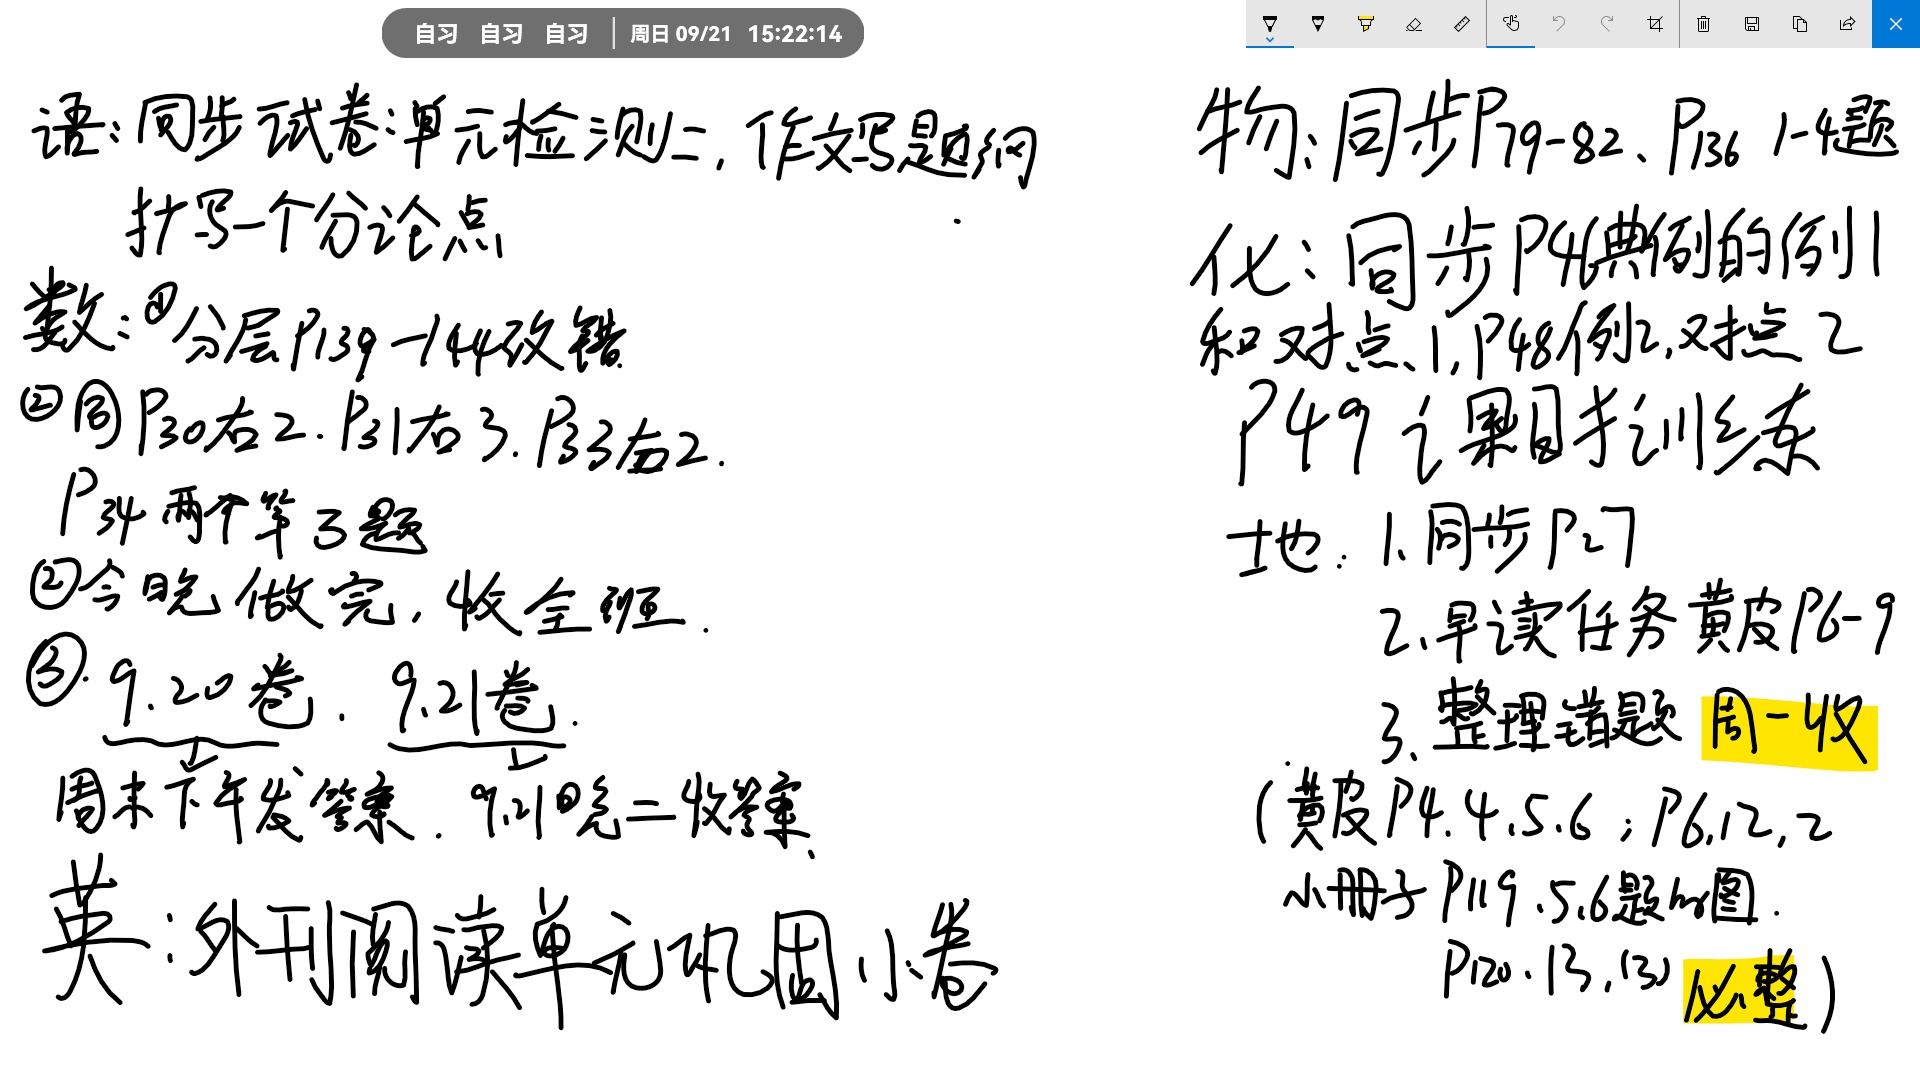 自习 自习 自习 周日 09/21 15:22:14
语:同步试卷:单元检测二,作文写题纲
抄写一个分论点
数:①分层P139-144改错.
②同P30右2.P31右3.P33右2.
P34两个第3题
②今晚做完,收全班.
③.9.20卷.9.21卷.
周末下午发答案.9.21日晚二收答案.
英:外刊阅读单元巩固小卷
物:同步P79-82、P136 1-4题
化:同步P46典例的例1
和对点、1,P48例2,对点2
P49 课时训练
地:1、同步P27
2、早读任务黄皮P6-9
3、整理错题 周一收
(黄皮P4.4.5.6;P6,12,2
小册子P119.5.6题的图.
P120.13,(3) 必整)